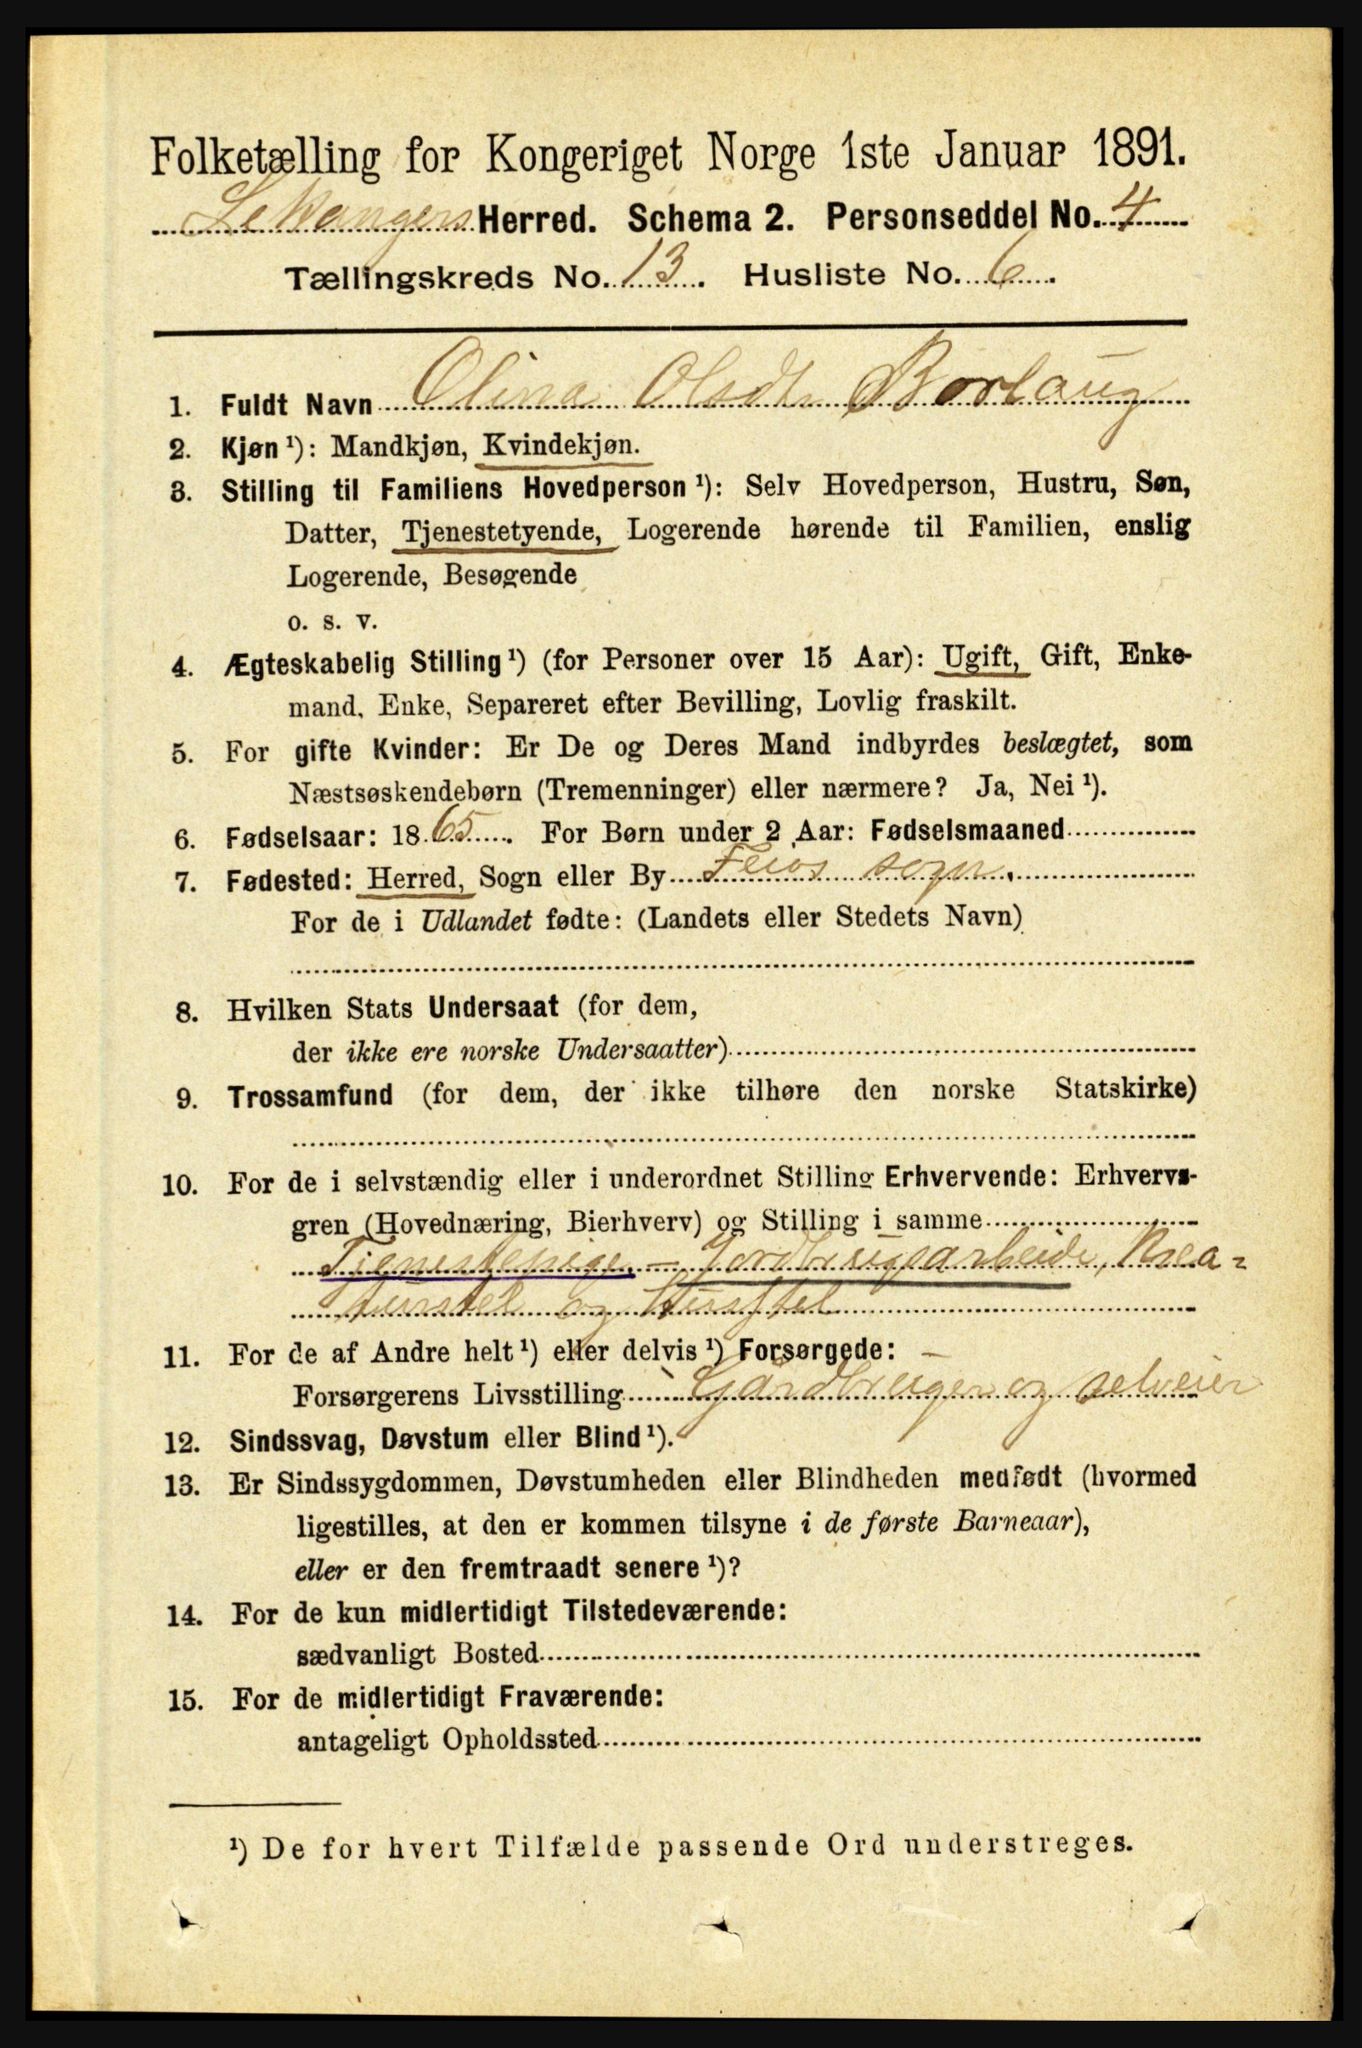 Folketælling for Kongeriget Norge 1ste Januar 1891.
Lekangers Herred. Schema 2. Personseddel No. 4
Tællingskreds No. 13. Husliste No. 6.
1. Fuldt Navn Olina Olsdtr Borlaug
2. Kjøn ¹): Mandkjøn, Kvindekjøn.
3. Stilling til Familiens Hovedperson ¹): Selv Hovedperson, Hustru, Søn,
Datter, Tjenestetyende, Logerende hørende til Familien, enslig
Logerende, Besøgende
o. s. v.
4. Ægteskabelig Stilling ¹) (for Personer over 15 Aar): Ugift, Gift, Enke-
mand, Enke, Separeret efter Bevilling, Lovlig fraskilt.
5. For gifte Kvinder: Er De og Deres Mand indbyrdes beslægtet, som
Næstsøskendebørn (Tremenninger) eller nærmere? Ja, Nei ¹).
6. Fødselsaar: 1865. For Børn under 2 Aar: Fødselsmaaned
7. Fødested: Herred, Sogn eller By Feios sogn.
For de i Udlandet fødte: (Landets eller Stedets Navn)
8. Hvilken Stats Undersaat (for dem,
der ikke ere norske Undersaatter)
9. Trossamfund (for dem, der ikke tilhøre den norske Statskirke)
10. For de i selvstændig eller i underordnet Stilling Erhvervende: Erhvervs-
gren (Hovednæring, Bierhverv) og Stilling i samme
Tjenestepige - Jordbrugsarbeide, Krea=
turstel og Husstel
11. For de af Andre helt ¹) eller delvis ¹) Forsørgede: -
Forsørgerens Livsstilling Gårdbruger og selveier
12. Sindssvag, Døvstum eller Blind ¹).
13. Er Sindssygdommen, Døvstumheden eller Blindheden medfødt (hvormed
ligestilles, at den er kommen tilsyne i de første Barneaar),
eller er den fremtraadt senere ¹)?
14. For de kun midlertidigt Tilstedeværende:
sædvanligt Bosted
15. For de midlertidigt Fraværende:
antageligt Opholdssted
¹) De for hvert Tilfælde passende Ord understreges.